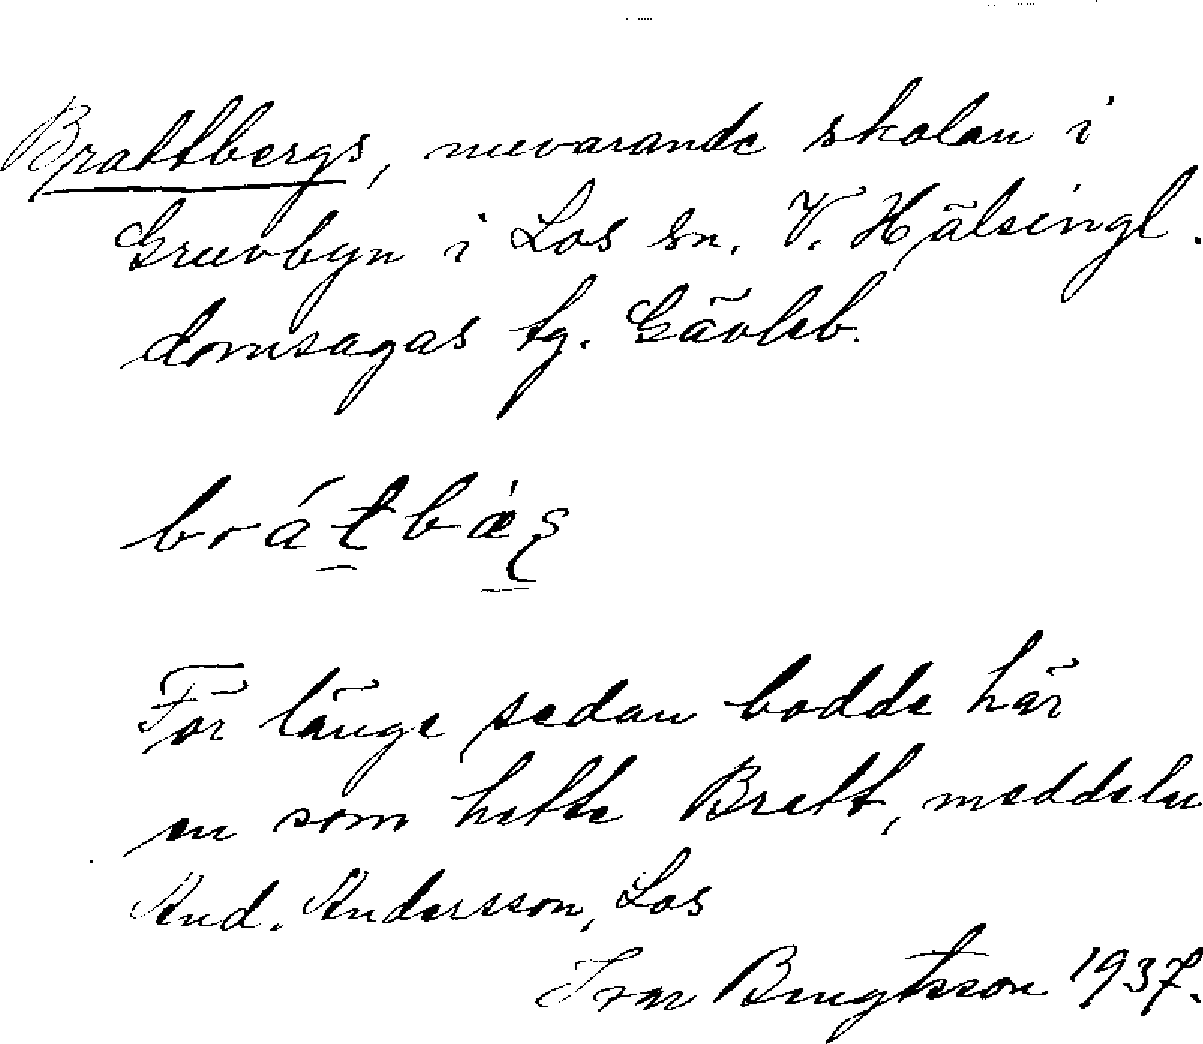 Brattbergs, nuvarande skolan i
Gruvbyn i Los sn. V. Hälsingl.
domsagas tg. Gävleb.
bråtbæs
För länge sedan bodde här
en som hette Brett, meddelar
And. Andersson, Los
Ivar Bengtsson 1937.